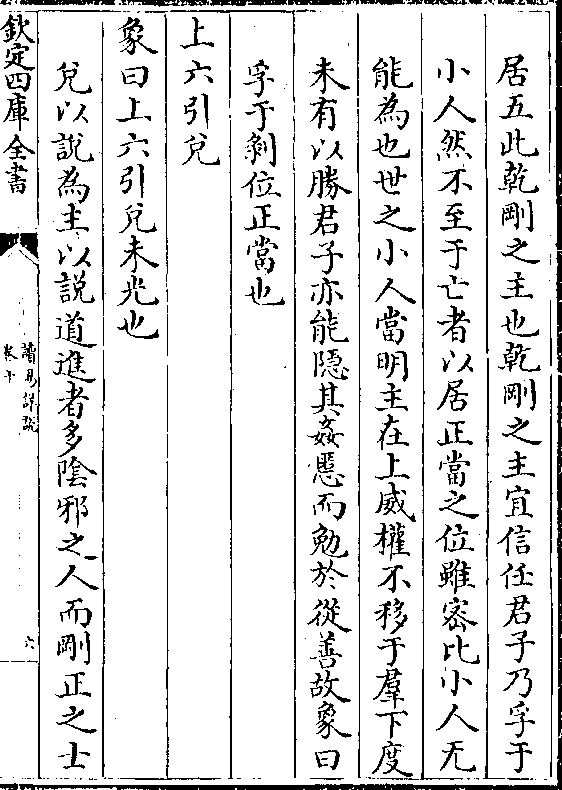 居五此乾剛之主也乾剛之主宜信任君子乃孚于
小人然不至于亡者以居正當之位雖密比小人无
能為也世之小人當明主在上威權不移于羣下度
未有以勝君子亦能隱其姦慝而勉於從善故象曰
孚于剝位正當也
上六引兌
象曰上六引兌未光也
兌以說為主以說道進者多陰邪之人而剛正之士
欽定四庫全書
讀易詳說
卷十
六